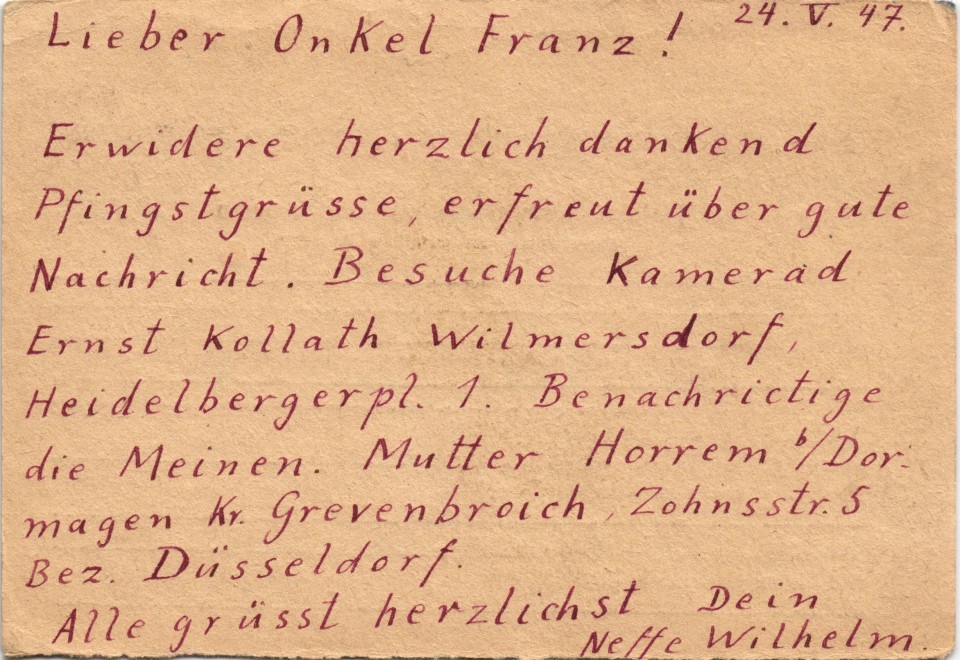 24. V. 47.
Lieber Onkel Franz!
Erwidere herzlich dankend
Pfingstgrüsse, erfreut über gute
Nachricht. Besuche Kamerad
Ernst Kollath Wilmersdorf,
Heidelbergerpl. 1. Benachrictige
die Meinen. Mutter Horrem b/Dor-
magen Kr. Grevenbroich, Zohnsstr. 5
Bez. Düsseldorf.
Alle grüsst herzlichst Dein
Neffe Wilhelm.